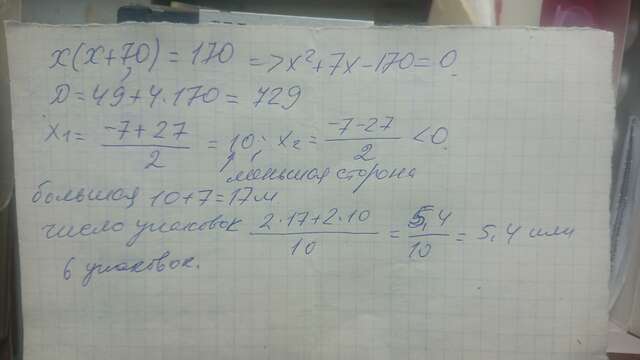 x(x+7,0) = 170 => x²+7x-170=0.
D=49+4·170=729
x₁= (-7+27)/2 = 10; x₂= (-7-27)/2 <0.
меньшая сторона
большая 10+7=17м
число упаковок (2·17+2·10)/10 = 5,4/10 = 5,4 или
6 упаковок.